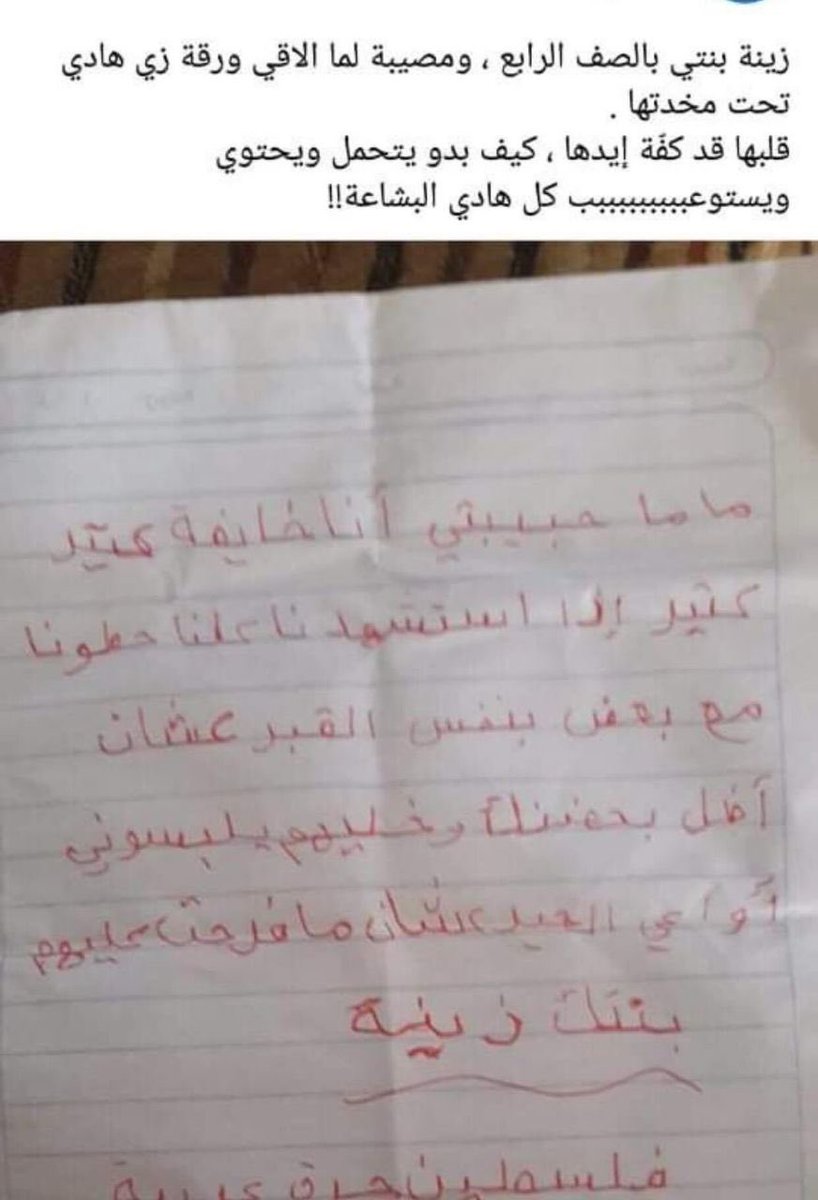 زينة بنتي بالصف الرابع ، ومصيبة لما الاقي ورقة زي هادي
تحت مخدتها .
قلبها قد كفّة إيدها ، كيف بدو يتحمل ويحتوي
ويستوعبببببببببب كل هادي البشاعة!!
ماما حبيبتي أنا خايفة كتير
كتير إذا استشهدنا كلنا حطونا
مع بعض بنفس القبر عشان
أضل بحضنك وخليهم يلبسوني
أواعي العيد عشان ما فرحت عليهم
بنتك زينة
فلسطين حرة عربية